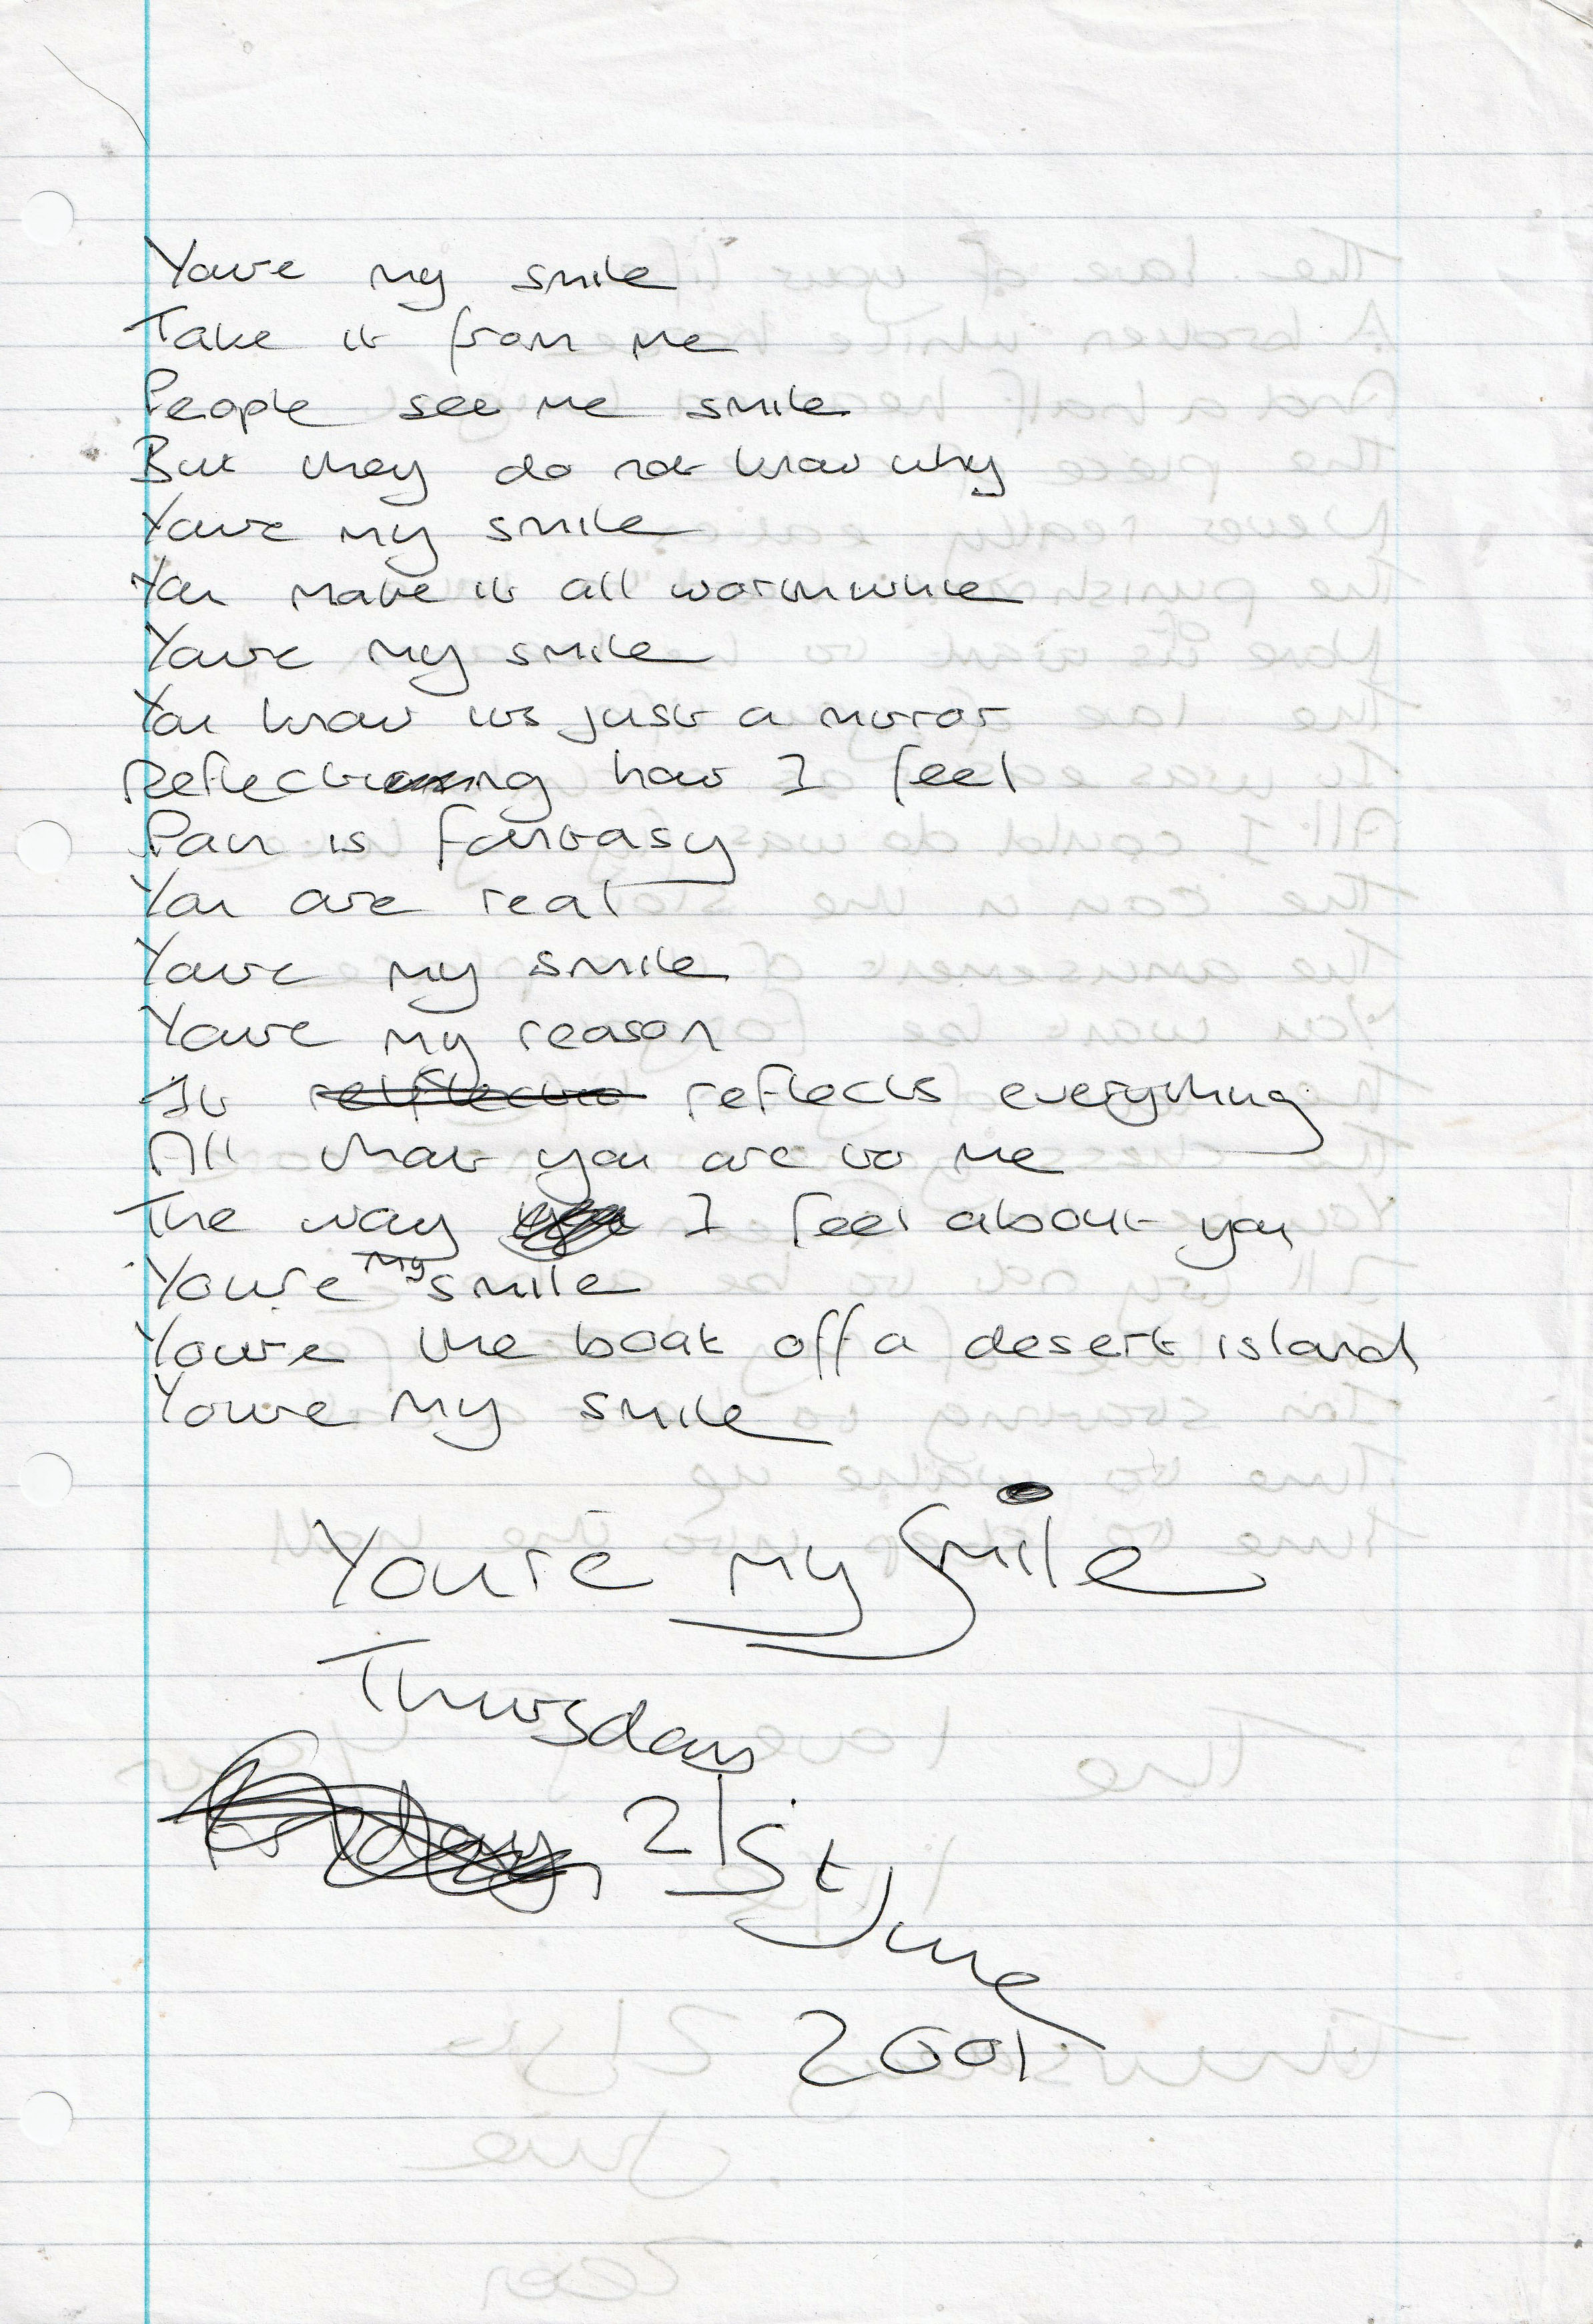 Youre my smile
Take it from me
People see me smile
But they do not know why
Youre my smile
You make it all worthwhile
Youre my smile
You know its just a mirror
Reflecting how I feel
Pain is fantasy
You are real
Youre my smile
Youre my reason
It reflects everything
All that you are to me
The way I feel about you
Youre my smile
Youre the boat off a desert island
Youre my smile
Youre my Smile
Thursday
21st
June
2001